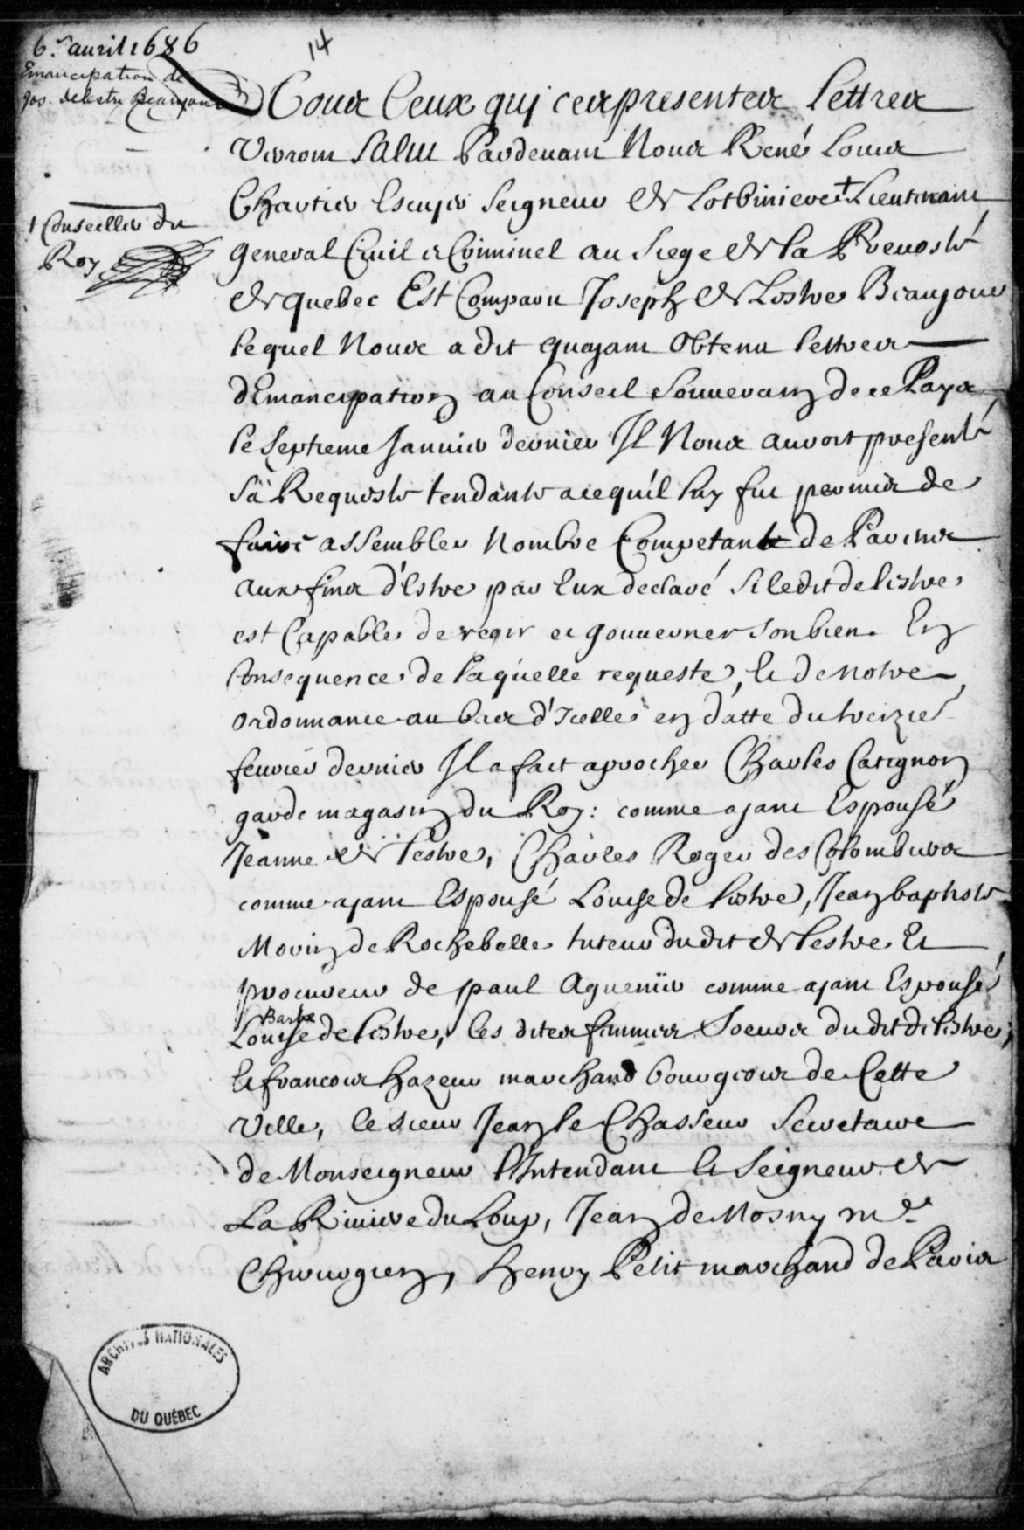 6.e auril 1686
14
Emancipation de
Jos. delestre Beaujour
A Tous Ceux quj ces presentes Lettres
Verront Salut Pardeuant Nous René Louis
Chartier Escuyer Seigneur de Lotbiniere + Lieutenant
+ Conseiller du
Roy
general Ciuil et Criminel au Siege de la Preuosté
de quebec Est Comparu Joseph de Lestre Beaujour
lequel Nous a dit quajant Obtenu lettres
dEmancipation au Conseil Souuerain de ce Pays
le Septieme Januier dernier Il Nous auroit presenté
Sa Requeste tendante a ce qu'il luy fut permis de
faire assembler Nombre Competant de Parens
aux fins d'Estre par Eux declaré Si ledit de lestre
est Capable de regir et gouuerner son bien. En
Consequence de laquelle requeste, et de Notre
ordonnance au bas d'Icelle en datte du treize
feurier dernier Il a fait aprocher Charles Catignon
garde magasin du Roy: comme ajant Espousé
Jeanne de lestre, Charles Roger des Colombiers
comme ajant Espousé Louise de lestre, Jean baptiste
Morin de Rochebelle tuteur du dit de lestre Et
procureur de paul Aguenier comme ajant Espousé
Barbe
Louise de lestre, les dites femmes Soeurs du dit de lestre;
et francois hazeur marchand bourgeois de Cette
Ville, le sieur Jean le Chasseur Secretaire
de Monseigneur l'Intendant et Seigneur de
La Riuiere du Loup, Jean de Mosny m.e
Chirurgien, henry Petit marchand de Paris
ARCHIVES NATIONALES
DU QUÉBEC